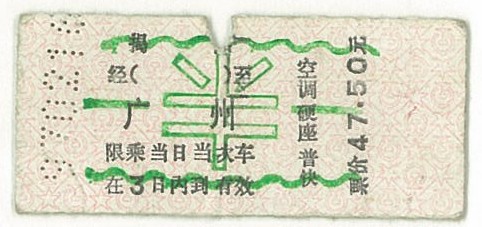 揭
经( )至
广 州
限乘当日当次车
在3日内到有效
半
空调硬座普快
票价47.50元